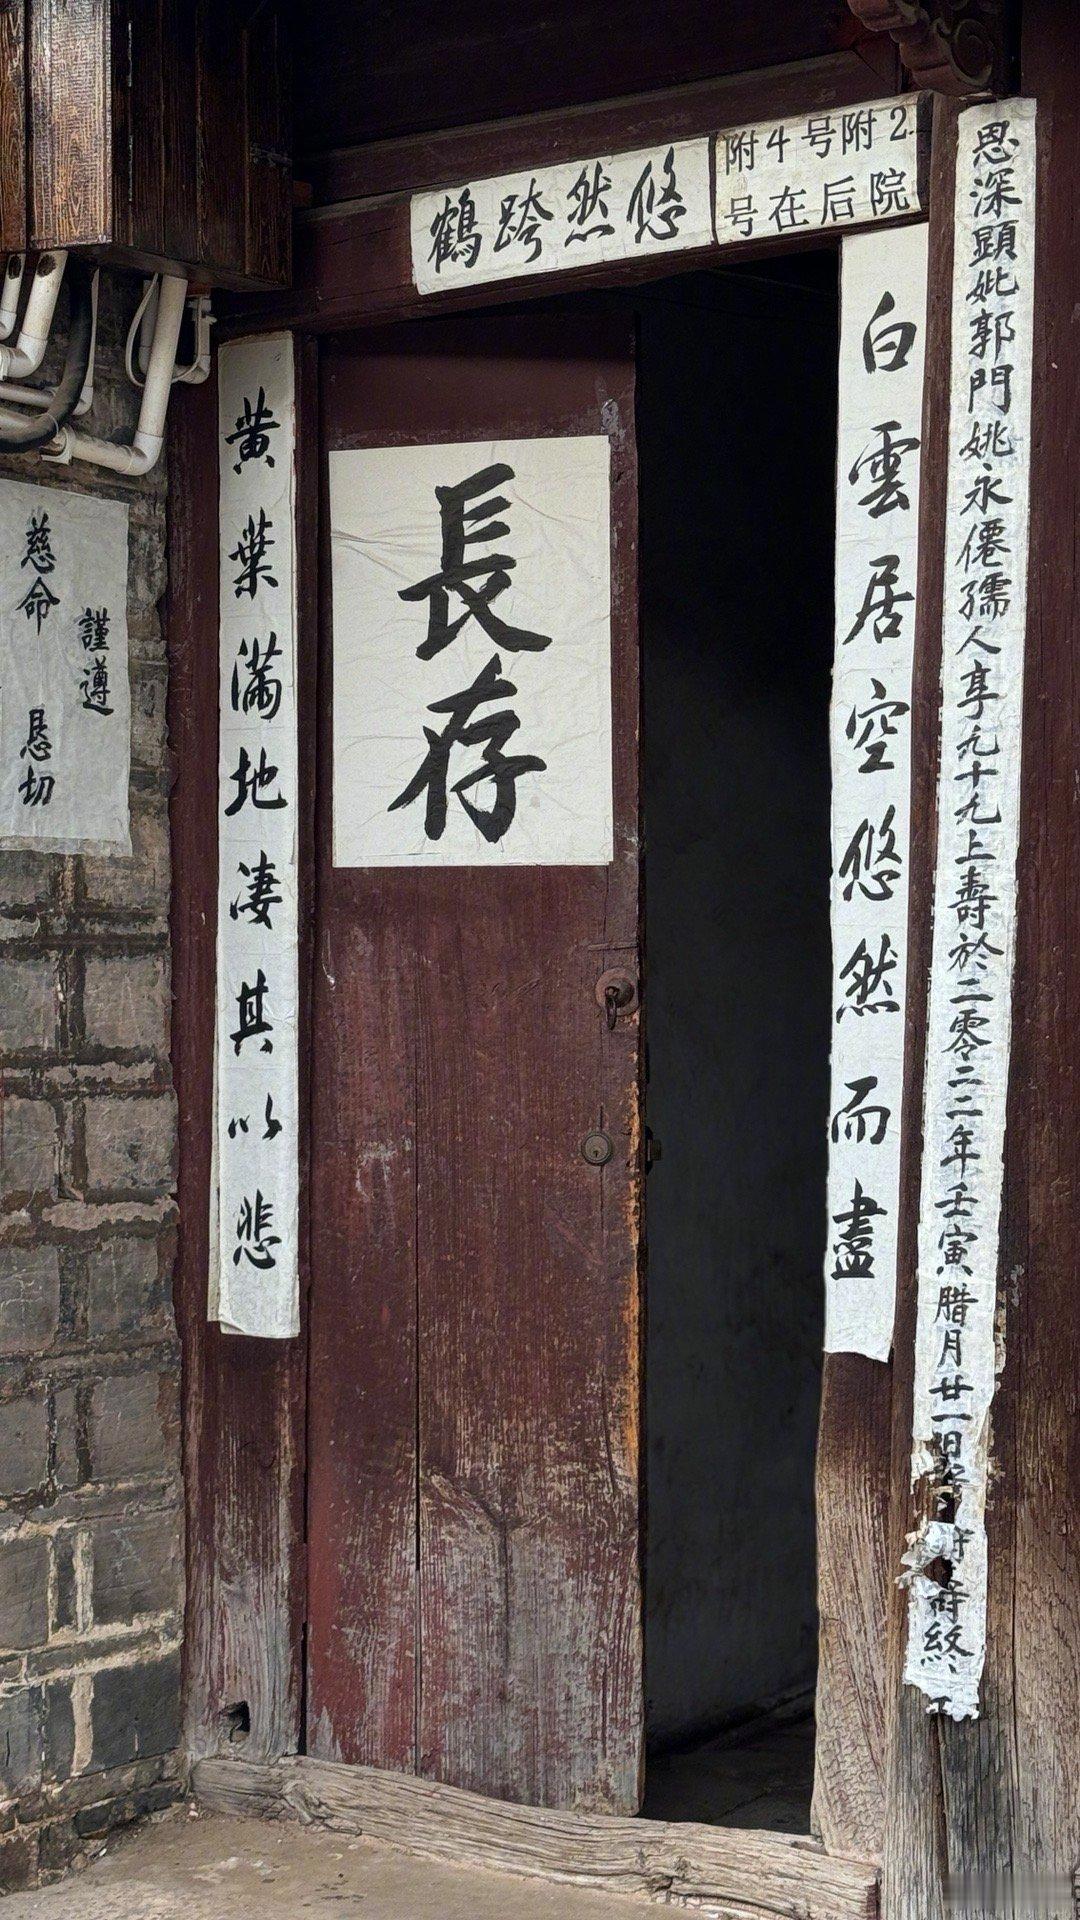 恩深顯妣郭門姚永僊孺人享九十九上壽於二零二二年壬寅腊月廿一
時壽終
附4号附2
号在后院
鶴跨然悠
白雲居空悠然而盡
長存
黄葉滿地凄其以悲
謹遵
慈命 恳切